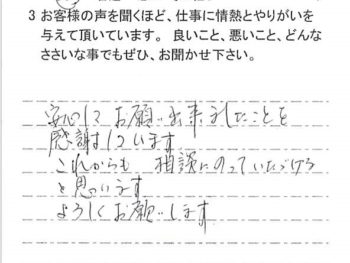 3 お客様の声を聞くほど、仕事に情熱とやりがいを
与えて頂いています。 良いこと、悪いこと、どんな
ささいな事でもぜひ、お聞かせ下さい。
安心してお願い出来ましたことを
感謝しています
これからも 相談にのっていただけ
と思っています
よろしくお願いします